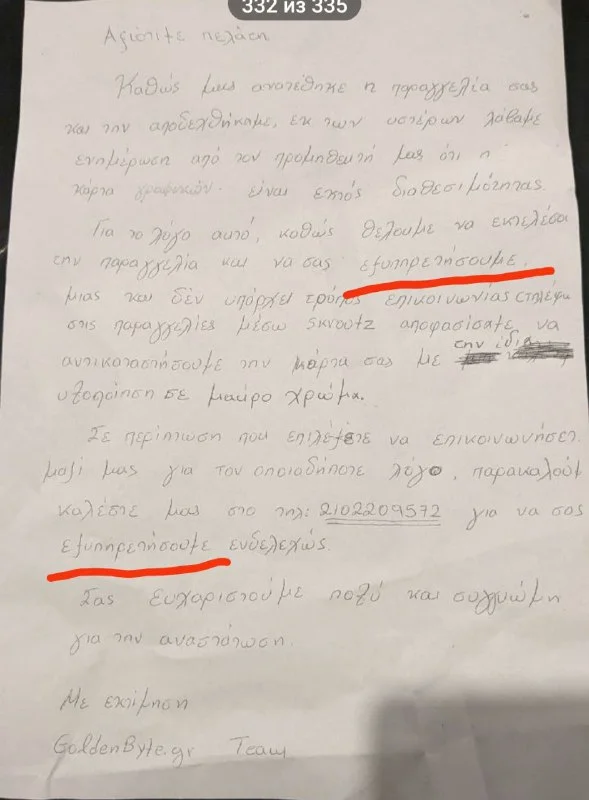 332 из 335
Αξιότιμε πελάτη
Καθώς μας ανατέθηκε η παραγγελία σας
και την αποδεχθήκαμε, εκ των υστέρων λάβαμε
ενημέρωση από τον προμηθευτή μας ότι η
κάρτα γραφικών είναι εκτός διαθεσιμότητας.
Για το λόγο αυτό, καθώς θέλουμε να εκτελέσου
την παραγγελία και να σας εξυπηρετήσουμε,
μιας και δεν υπάρχει τρόπος επικοινωνίας
στις παραγγελίες μέσω Skroutz αποφασίσατε να
αντικαταστήσουμε την κάρτα σας με την ίδια
υλοποίηση σε μαύρο χρώμα.
Σε περίπτωση που επιλέξετε να επικοινωνήσετ
μαζί μας για τον οποιαδήποτε λόγο, παρακαλούμ
καλέστε μας στο τηλ: 2102209572 για να σας
εξυπηρετήσουμε ενδελεχώς.
Σας ευχαριστούμε πολύ και συγγνώμη
για την αναστάτωση.
Με εκτίμηση
GoldenByte.gr Team